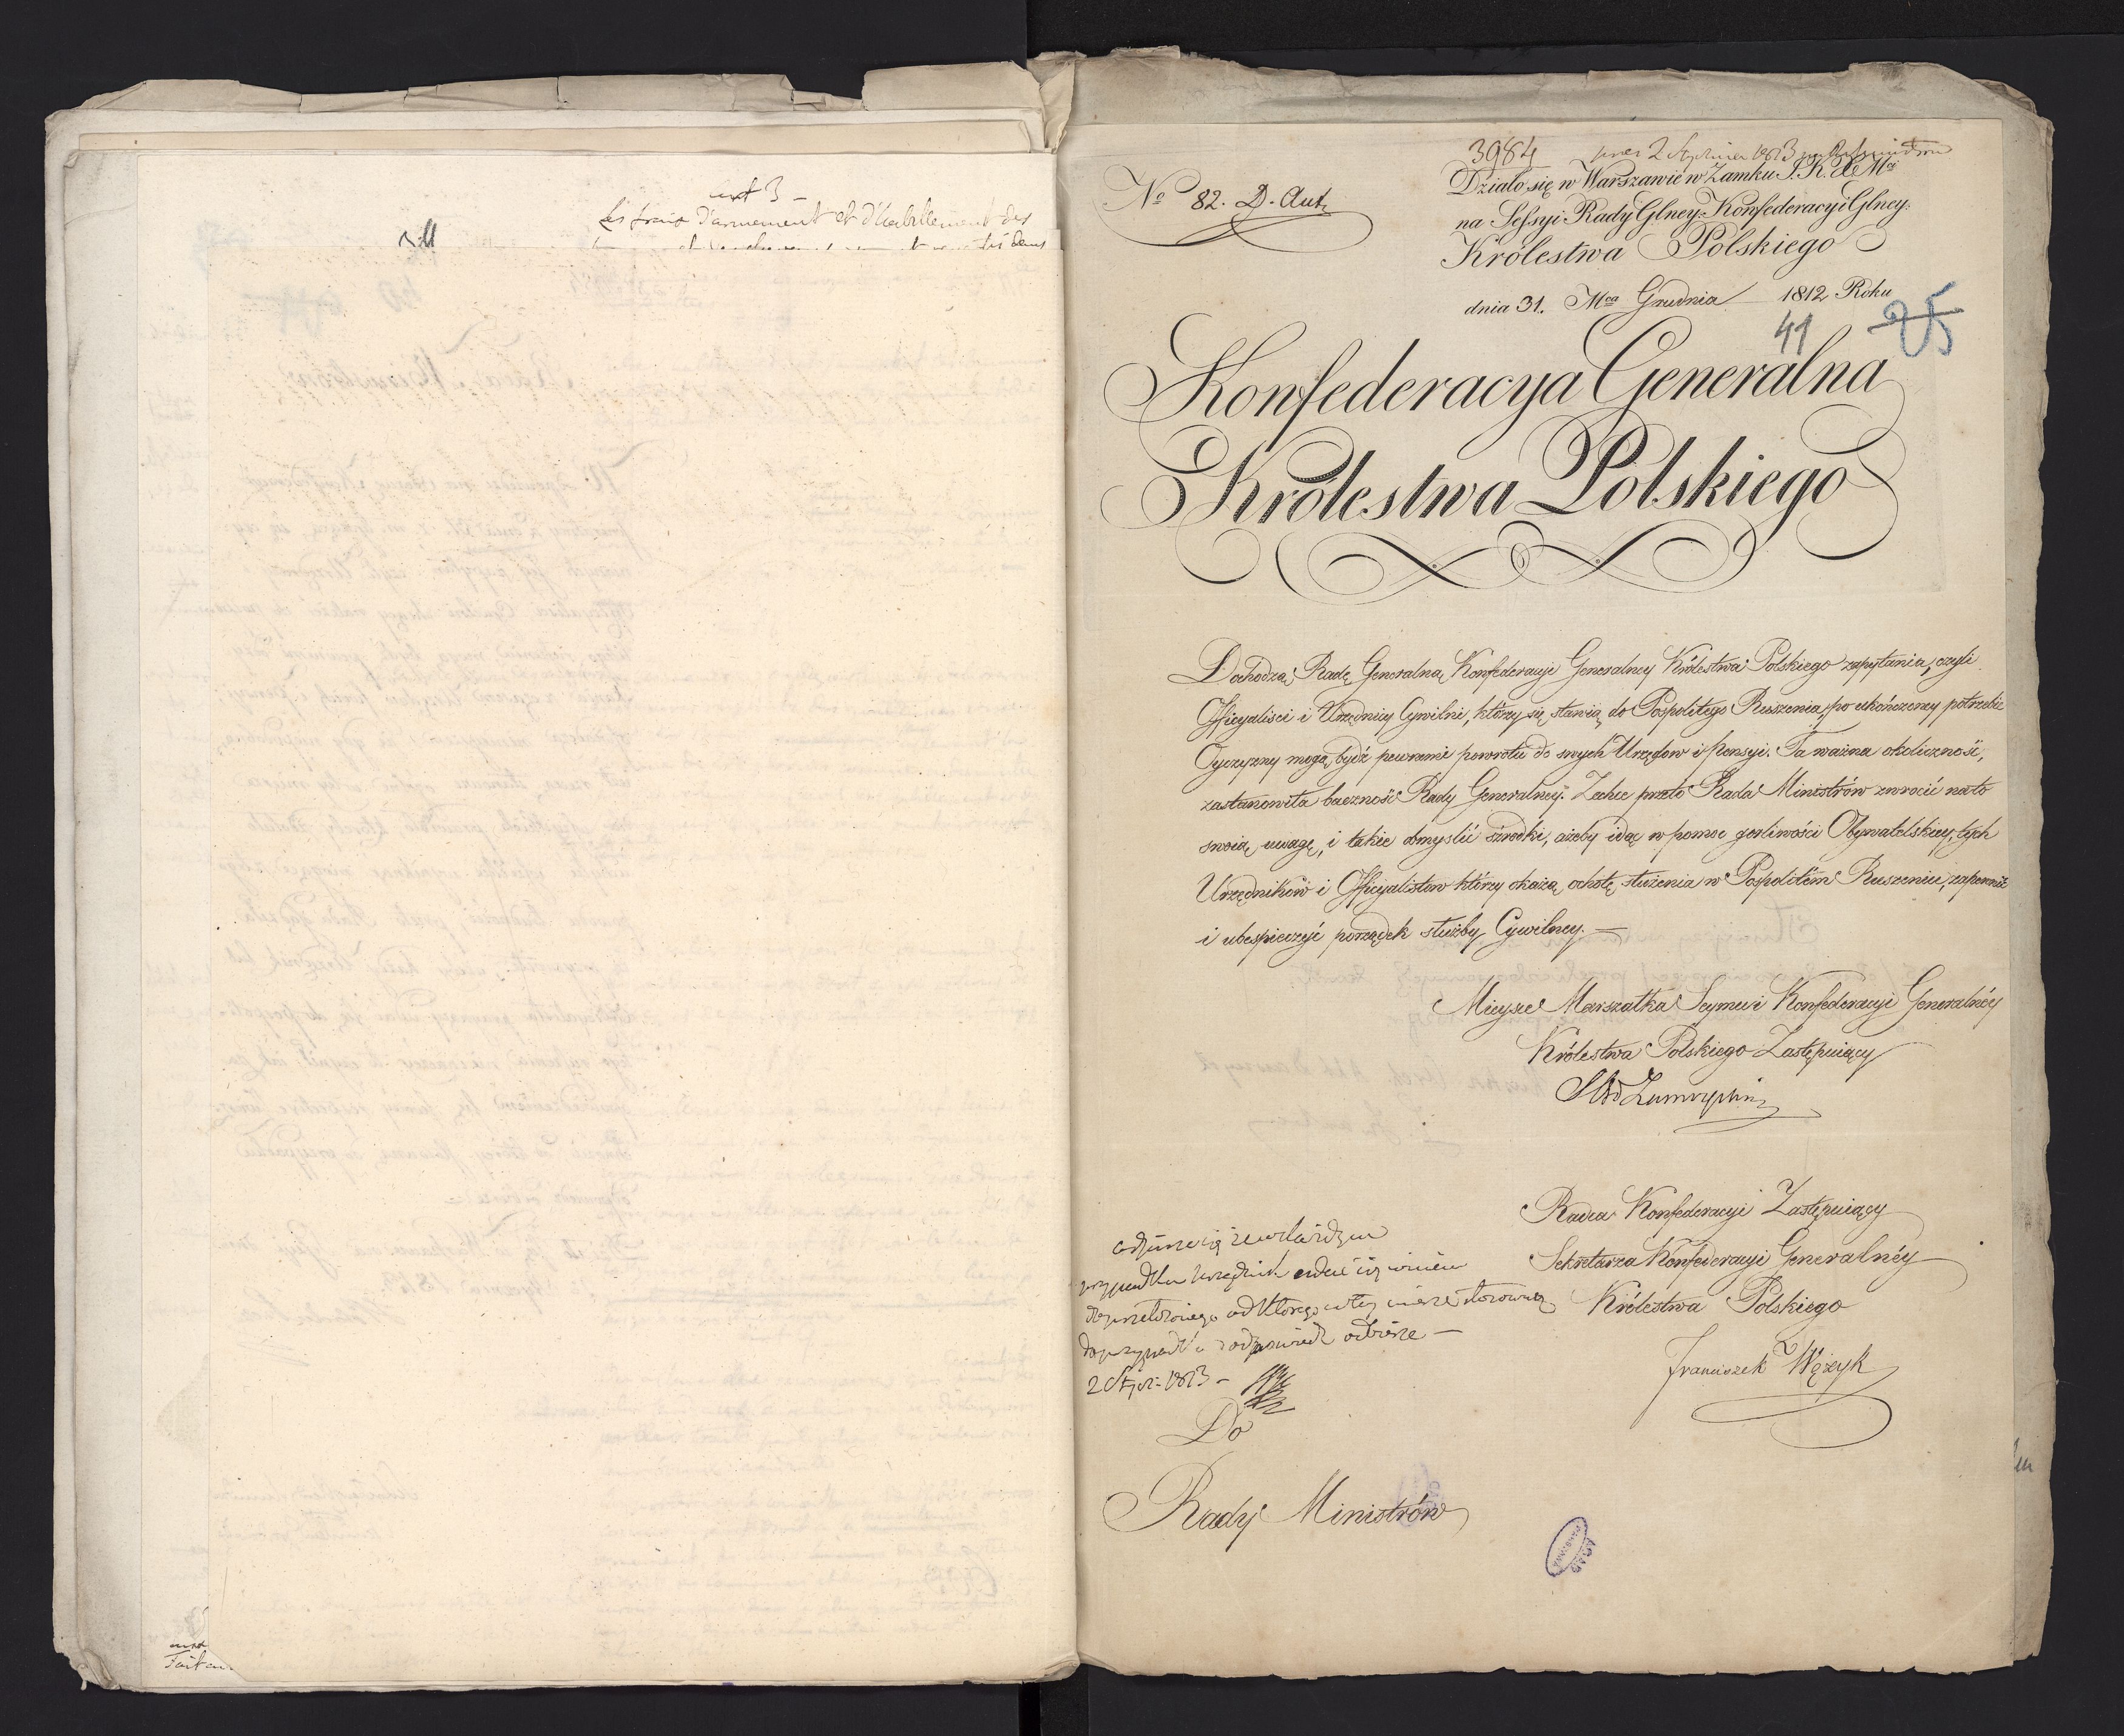 art 3 -
Les frais d'armement et d'habillement des
3984
2 Stycznia 1813
No 82. D. Aut.
Działo się w Warszawie w Zamku J. K. Mci
na Sessyi Rady Glney Konfederacyi Glney
Królestwa Polskiego
dnia 31. Mca Grudnia 1812 Roku
41 25
Konfederacya Generalna
Królestwa Polskiego
Dochodzą Radę Generalną Konfederacyi Generalney Królestwa Polskiego zapytania, czyli
Officyaliści i Urzędnicy Cywilni, którzy się stawią do Pospolitego Ruszenia, po ukończoney potrzebie
Oyczyzny mogą bydź pewnemi powrotu do swych Urzędów i pensyi. Ta ważna okoliczność,
zastanowiła baczność Rady Generalney. Zechce przeto Rada Ministrów zwrócić na to
swoią uwagę, i takie obmyślić środki, ażeby idąc w pomoc gorliwości Obywatelskiey, tych
Urzędników i Officyalistów którzy okażą ochotę służenia w Pospolitém Ruszeniu, zapewnić
i ubespieczyć porządek służby Cywilney. —
Mieysce Marszałka Seymu i Konfederacyi Generalnéy
Królestwa Polskiego Zastępuiący
Radca Konfederacyi Zastępuiący
Sekretarza Konfederacyi Generalnéy
Królestwa Polskiego
Franciszek Wężyk
w każdym
przypadku urzędnik udać się winien
do przełożonego od którego w tey mierze stosowną
do przypadku odpowiedź odbierze —
2 Stycz: 1813 -
Do
Rady Ministrów
AGAD